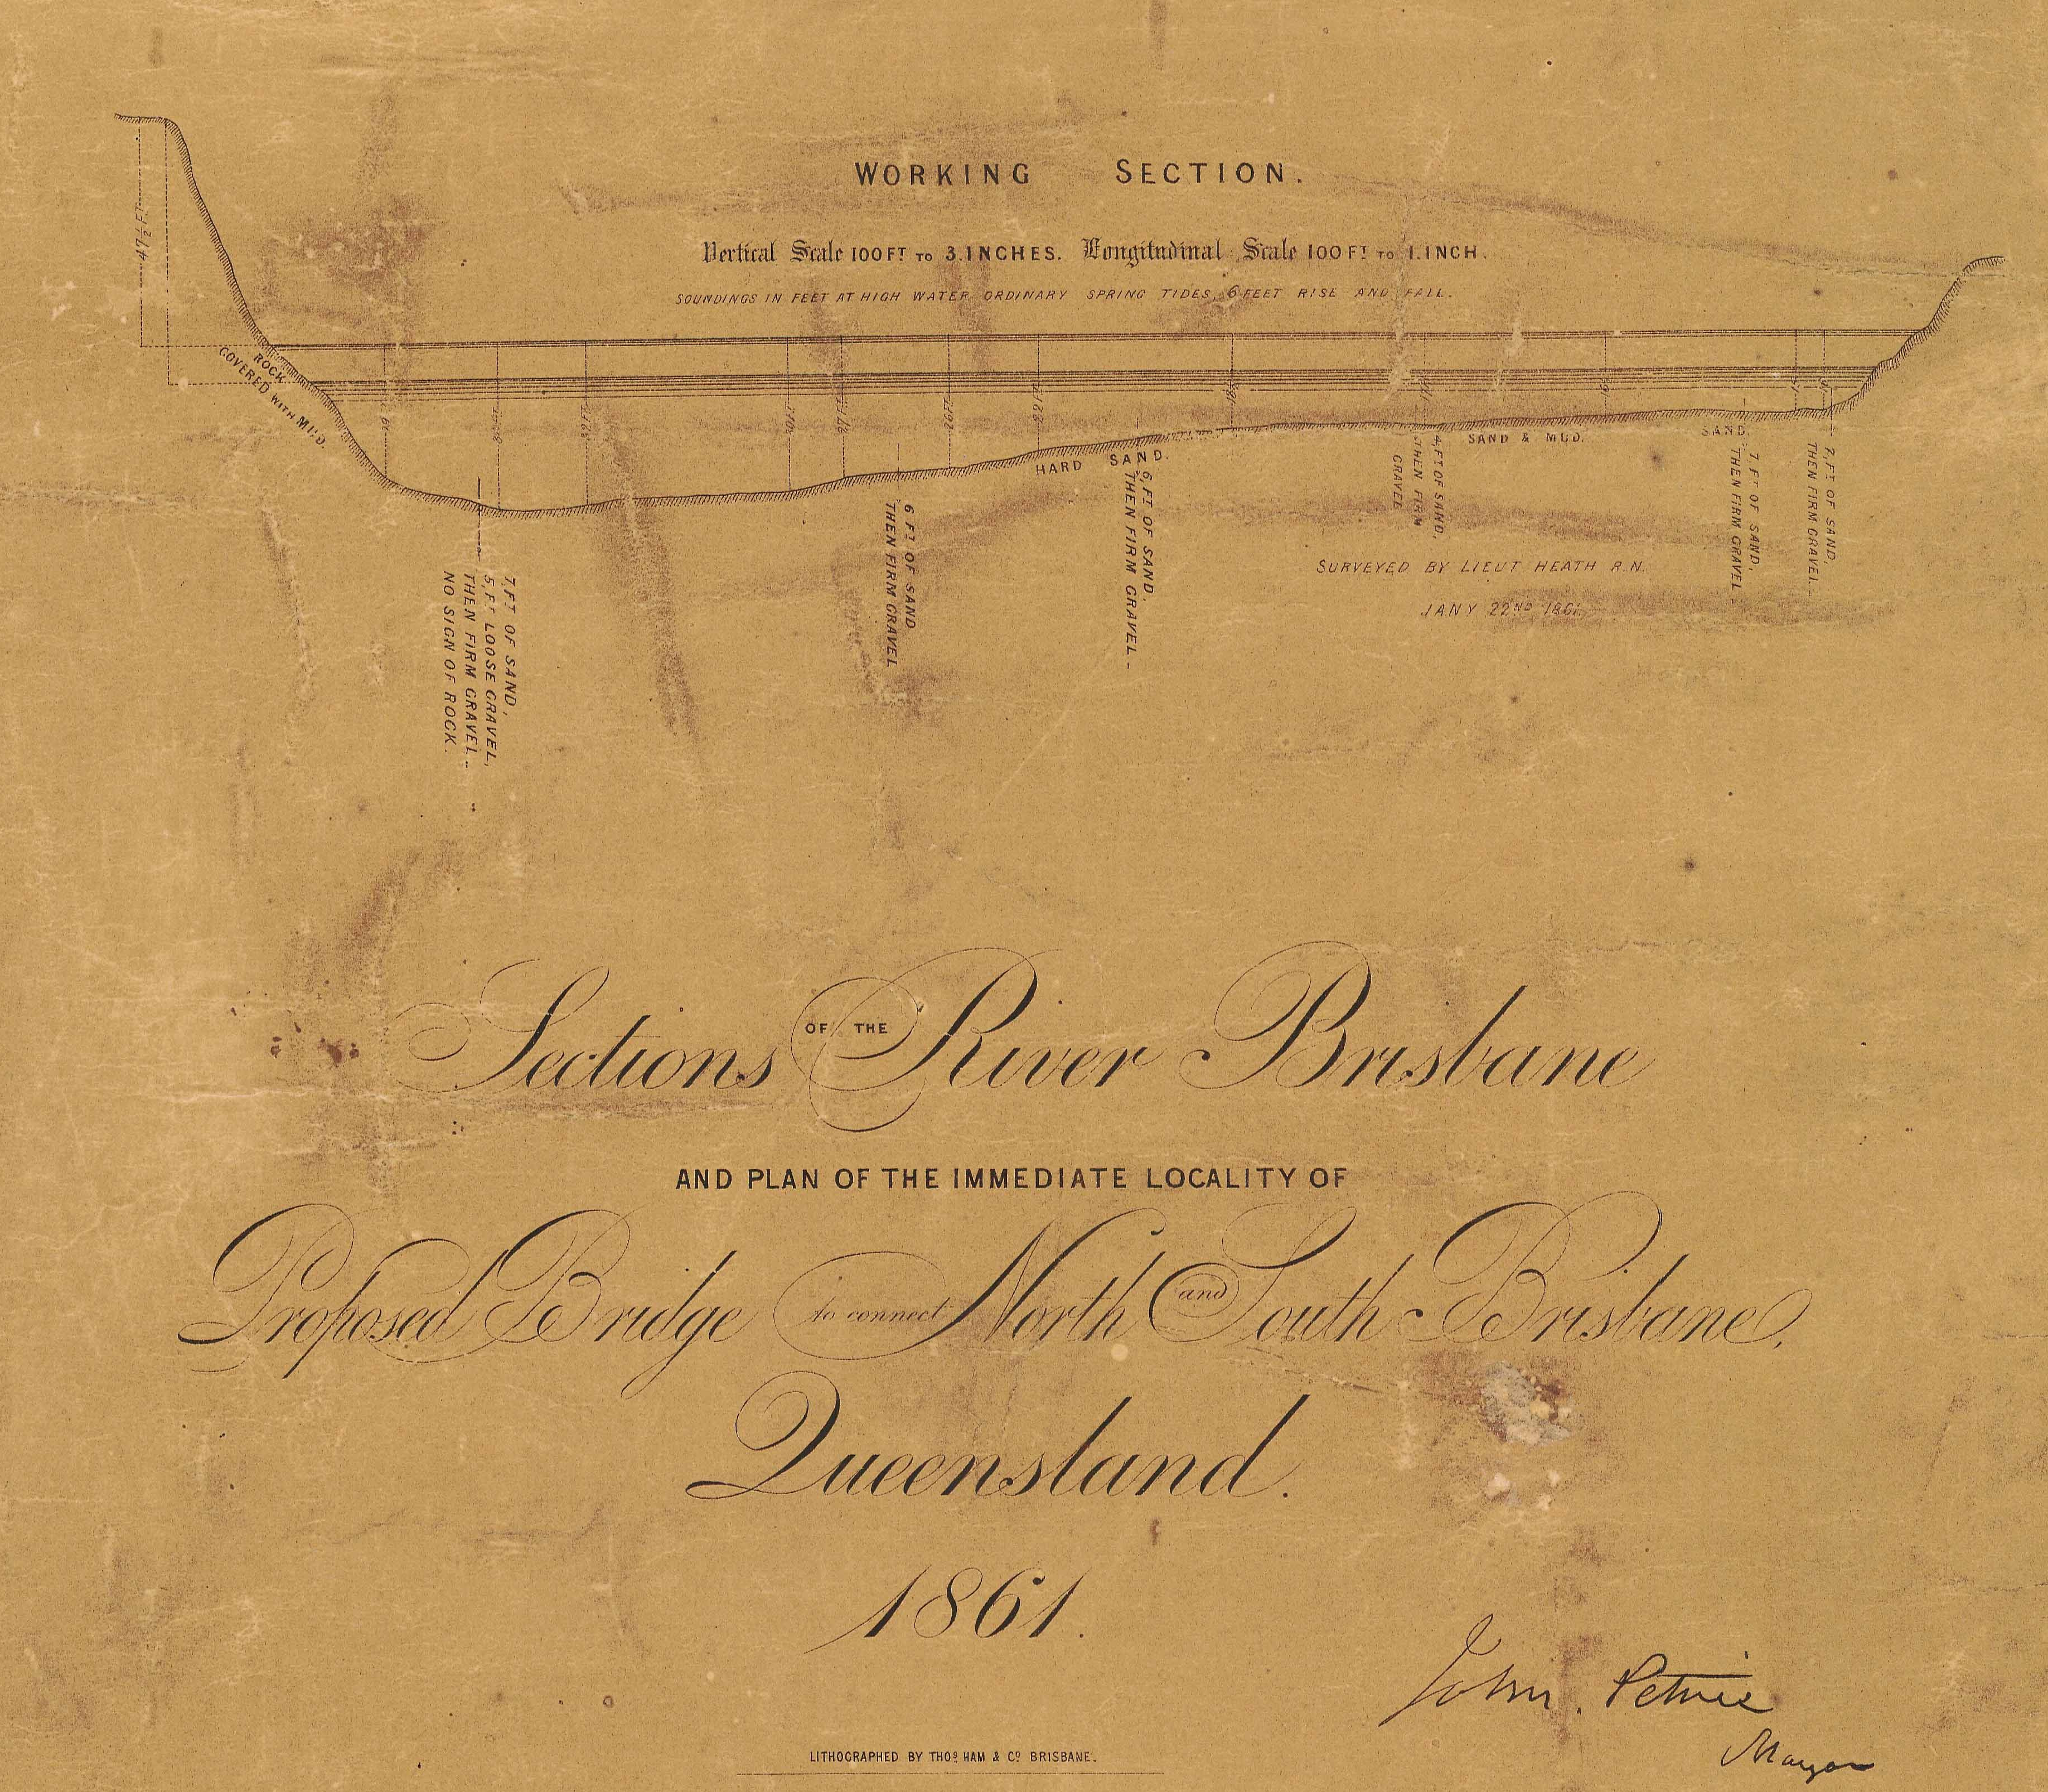 WORKING SECTION.
Vertical Scale 100 FT TO 3.INCHES. Longitudinal Scale 100 FT TO 1.INCH.
SOUNDINGS IN FEET AT HIGH WATER ORDINARY SPRING TIDES, 6 FEET RISE AND FALL.
47½ FT
ROCK
COVERED WITH MUD
HARD SAND.
SAND & MUD.
SAND
7 FT OF SAND,
5, FT LOOSE GRAVEL,
THEN FIRM GRAVEL -
NO SIGN OF ROCK.
6 FT OF SAND
THEN FIRM GRAVEL
6, FT OF SAND.
THEN FIRM GRAVEL -
4, FT OF SAND,
THEN FIRM
GRAVEL
7, FT OF SAND,
THEN FIRM GRAVEL -
7, FT OF SAND,
THEN FIRM GRAVEL.
SURVEYED BY LIEUT HEATH R.N.
JANY 22ND 1861.
Sections OF THE River Brisbane
AND PLAN OF THE IMMEDIATE LOCALITY OF
Proposed Bridge to connect North and South Brisbane,
Queensland.
1861.
John. Petrie
Mayor
LITHOGRAPHED BY THOS HAM & CO BRISBANE.